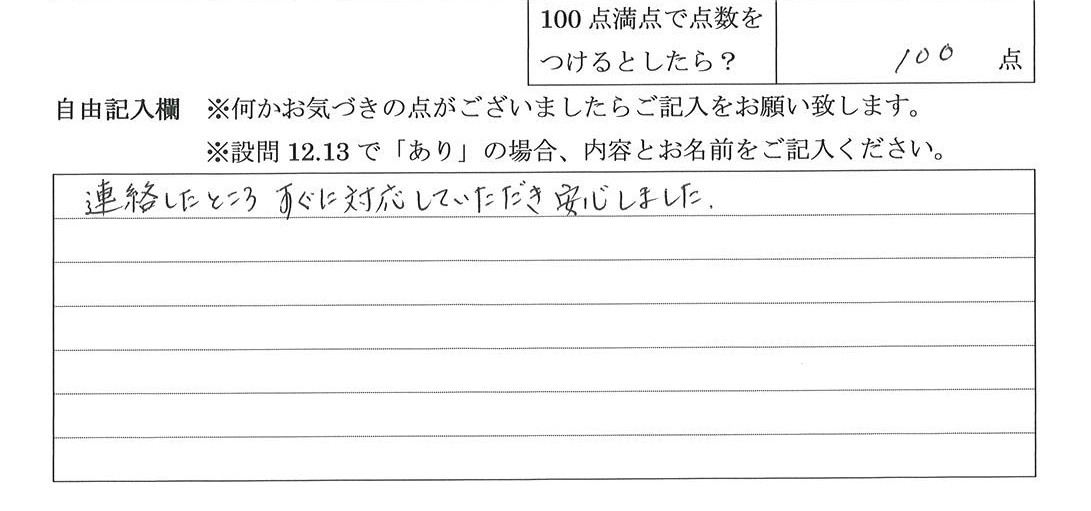 100点満点で点数を
つけるとしたら？
100 点
自由記入欄 ※何かお気づきの点がございましたらご記入をお願い致します。
※設問 12.13 で「あり」の場合、内容とお名前をご記入ください。
連絡したところ すぐに対応していただき安心しました.